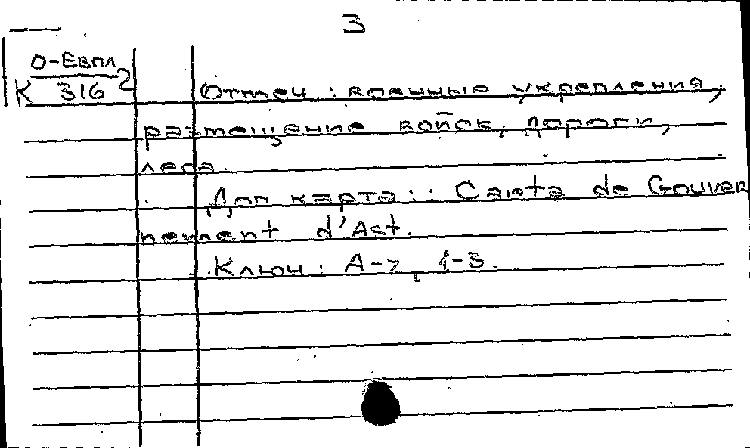 3
О-Евпл
К 316 2
Отмеч: военные укрепления,
размещение войск, дороги,
леса.
Доп карта: Carte de Gouver
nement d'Ast.
Ключ: A-z, 1-3.